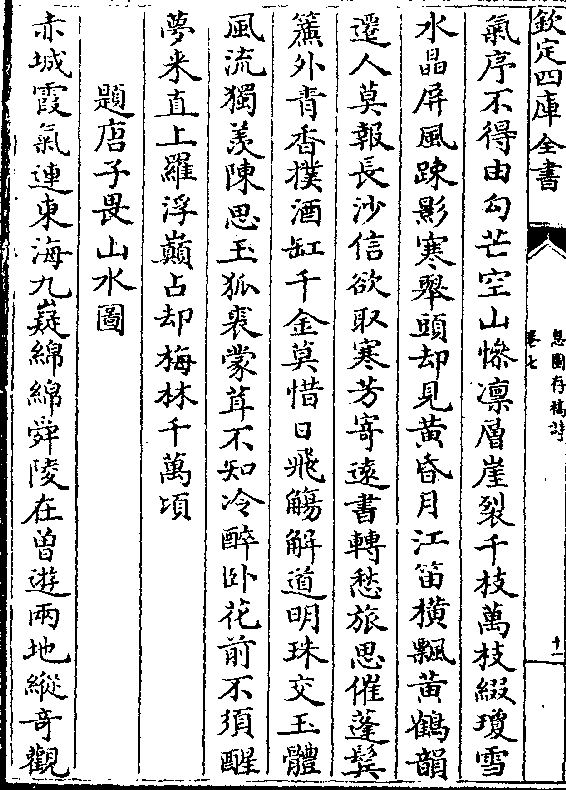 欽定四庫全書
息園存稿詩
卷七
十一
氣序不得由勾芒空山慘凛層崖裂千枝萬枝綴瓊雪
水晶屏風踈影寒舉頭却見黄昏月江笛横飄黄鶴韻
遷人莫報長沙信欲取寒芳寄逺書轉愁旅思催蓬鬓
簾外青香撲酒缸千金莫惜日飛觴解道明珠交玉體
風流獨羡陳思王狐裘蒙茸不知冷醉卧花前不須醒
夢来直上羅浮巔占却梅林千萬頃
題唐子畏山水圖
赤城霞氣連東海九嶷綿綿舜陵在曾遊兩地縱竒觀